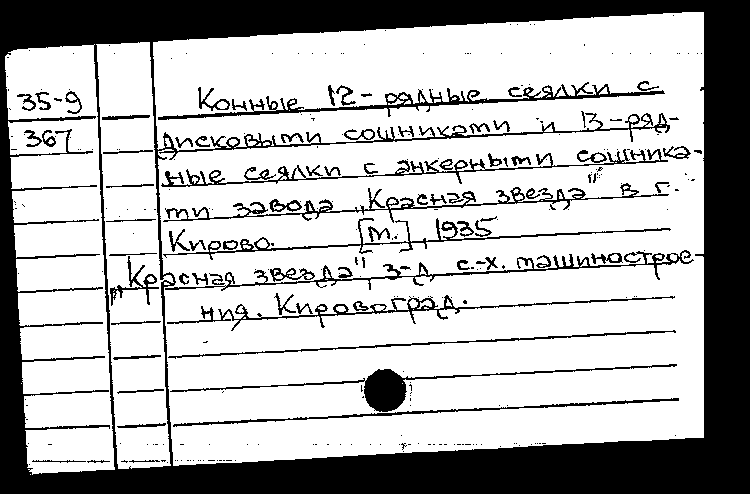 35-9 Конные 12-рядные сеялки с
367 дисковыми сошниками и 13-ряд-
ные сеялки с анкерными сошника-
ми завода „Красная звезда" в г.
Кирово. [М.], 1935
„Красная звезда", з-д с.-х. машинострое-
ния. Кировоград.